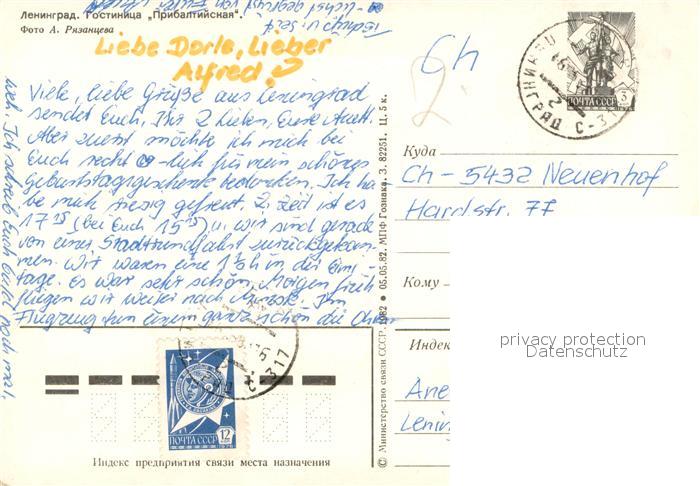 Ленинград. Гостиница „Прибалтийская".
Фото А. Рязанцева
Liebe Dorle, Lieber
Alfred!
Viele, liebe Grüße aus Leningrad
sendet Euch, Ihr 2 Lieben, Eure
Aber zuerst möchte ich mich bei
Euch recht für mein schönes
Geburtstagsgeschenk bedanken. Ich ha
be mich riesig gefreut. Z. Zeit ist es
17 15 (bei Euch 15 15) u. wir sind gerade
von einer Stadtrundfahrt zurückgekom-
men. Wir waren eine 1 ½ h in der Ermi-
tage. Es war sehr schön. Morgen früh
fliegen wir weiter nach Im
Flugzeug tun einem ganz schön die Ohren
weh. Ich schreib Euch noch mal,
Ch
2.
ПОЧТА СССР
3
ЛЕНИНГРАД С-317
Куда
Ch - 5432 Neuenhof
Hardstr. 77
Кому
privacy protection
Datenschutz
Индек
Ane
Lenin
© Министерство связи СССР, 1982 ● 05.05.82. МПФ Гознака. З. 82251. Ц. 5 к.
С-317
ПОЧТА СССР
12
Индекс предприятия связи места назначения